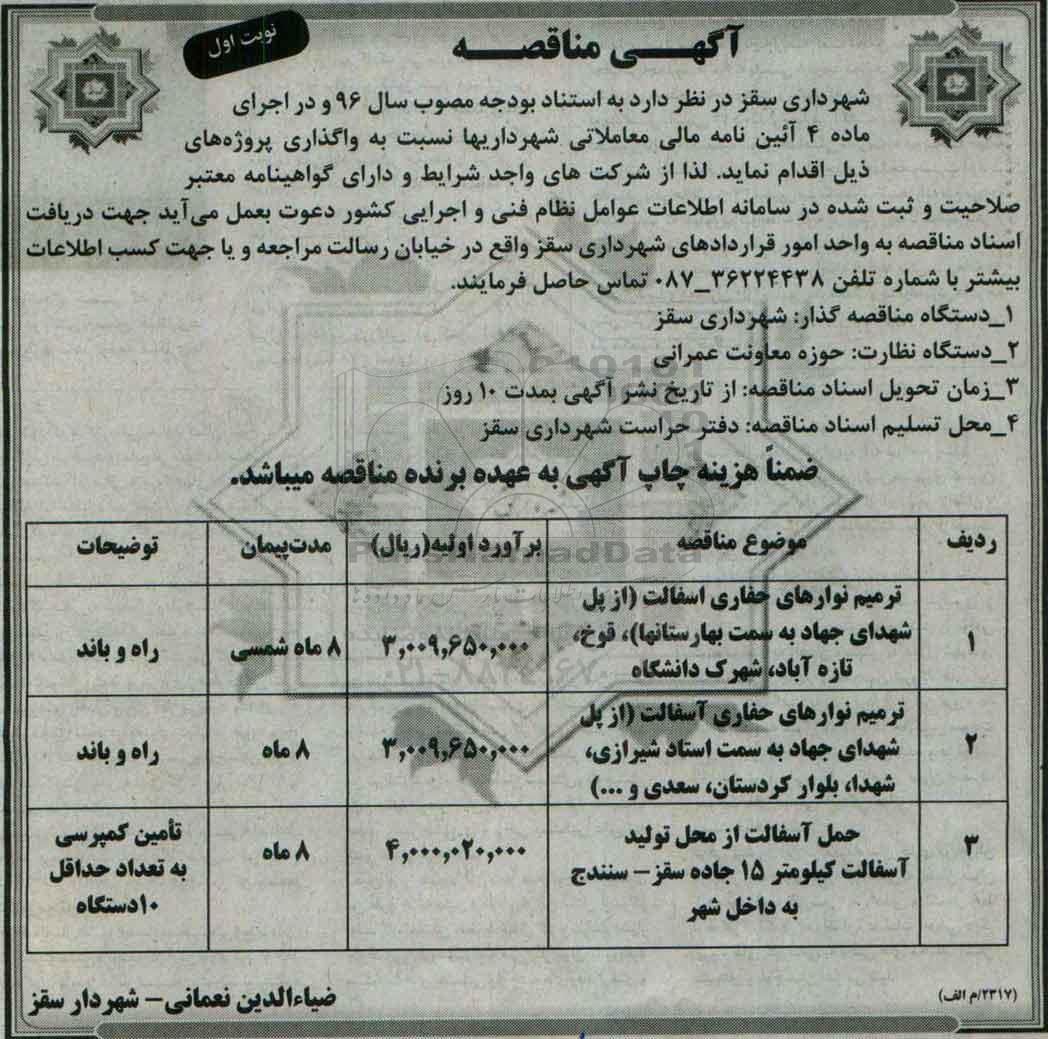 آگهـــی مناقصـــه
نوبت اول
شهرداری سقز در نظر دارد به استناد بودجه مصوب سال ۹۶ و در اجرای
ماده ۴ آئین نامه مالی معاملاتی شهرداریها نسبت به واگذاری پروژه‌های
ذیل اقدام نماید. لذا از شرکت های واجد شرایط و دارای گواهینامه معتبر
صلاحیت و ثبت شده در سامانه اطلاعات عوامل نظام فنی و اجرایی کشور دعوت بعمل می‌آید جهت دریافت
اسناد مناقصه به واحد امور قراردادهای شهرداری سقز واقع در خیابان رسالت مراجعه و یا جهت کسب اطلاعات
بیشتر با شماره تلفن ۳۶۲۲۴۴۳۸_۰۸۷ تماس حاصل فرمایند.
۱_دستگاه مناقصه گذار: شهرداری سقز
۲_دستگاه نظارت: حوزه معاونت عمرانی
۳_زمان تحویل اسناد مناقصه: از تاریخ نشر آگهی بمدت ۱۰ روز
۴_محل تسلیم اسناد مناقصه: دفتر حراست شهرداری سقز
ضمناً هزینه چاپ آگهی به عهده برنده مناقصه میباشد.
ردیف موضوع مناقصه برآورد اولیه(ریال) مدت‌پیمان توضیحات
ترمیم نوارهای حفاری اسفالت (از پل
۱ شهدای جهاد به سمت بهارستانها)، قوخ، ۳,۰۰۹,۶۵۰,۰۰۰ ۸ ماه شمسی راه و باند
تازه آباد، شهرک دانشگاه
ترمیم نوارهای حفاری آسفالت (از پل
۲ شهدای جهاد به سمت استاد شیرازی، ۳,۰۰۹,۶۵۰,۰۰۰ ۸ ماه راه و باند
شهدا، بلوار کردستان، سعدی و ...)
حمل آسفالت از محل تولید تأمین کمپرسی
۳ آسفالت کیلومتر ۱۵ جاده سقز – سنندج ۴,۰۰۰,۰۲۰,۰۰۰ ۸ ماه به تعداد حداقل
به داخل شهر ۱۰دستگاه
ضیاءالدین نعمانی– شهردار سقز
(۲۳۱۷/م الف)
ParsNamadData